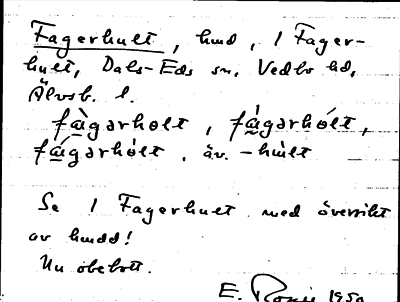 Fagerhult, hmd, 1 Fager-
hult, Dals-Eds sn, Vedbo hd,
Älvsb. l.
fàgərholt, fágərhólt,
fágərhòlt, äv. -hult
Se 1 Fagerhult med översikt
av hmdd!
Nu obebott.
E. 1950